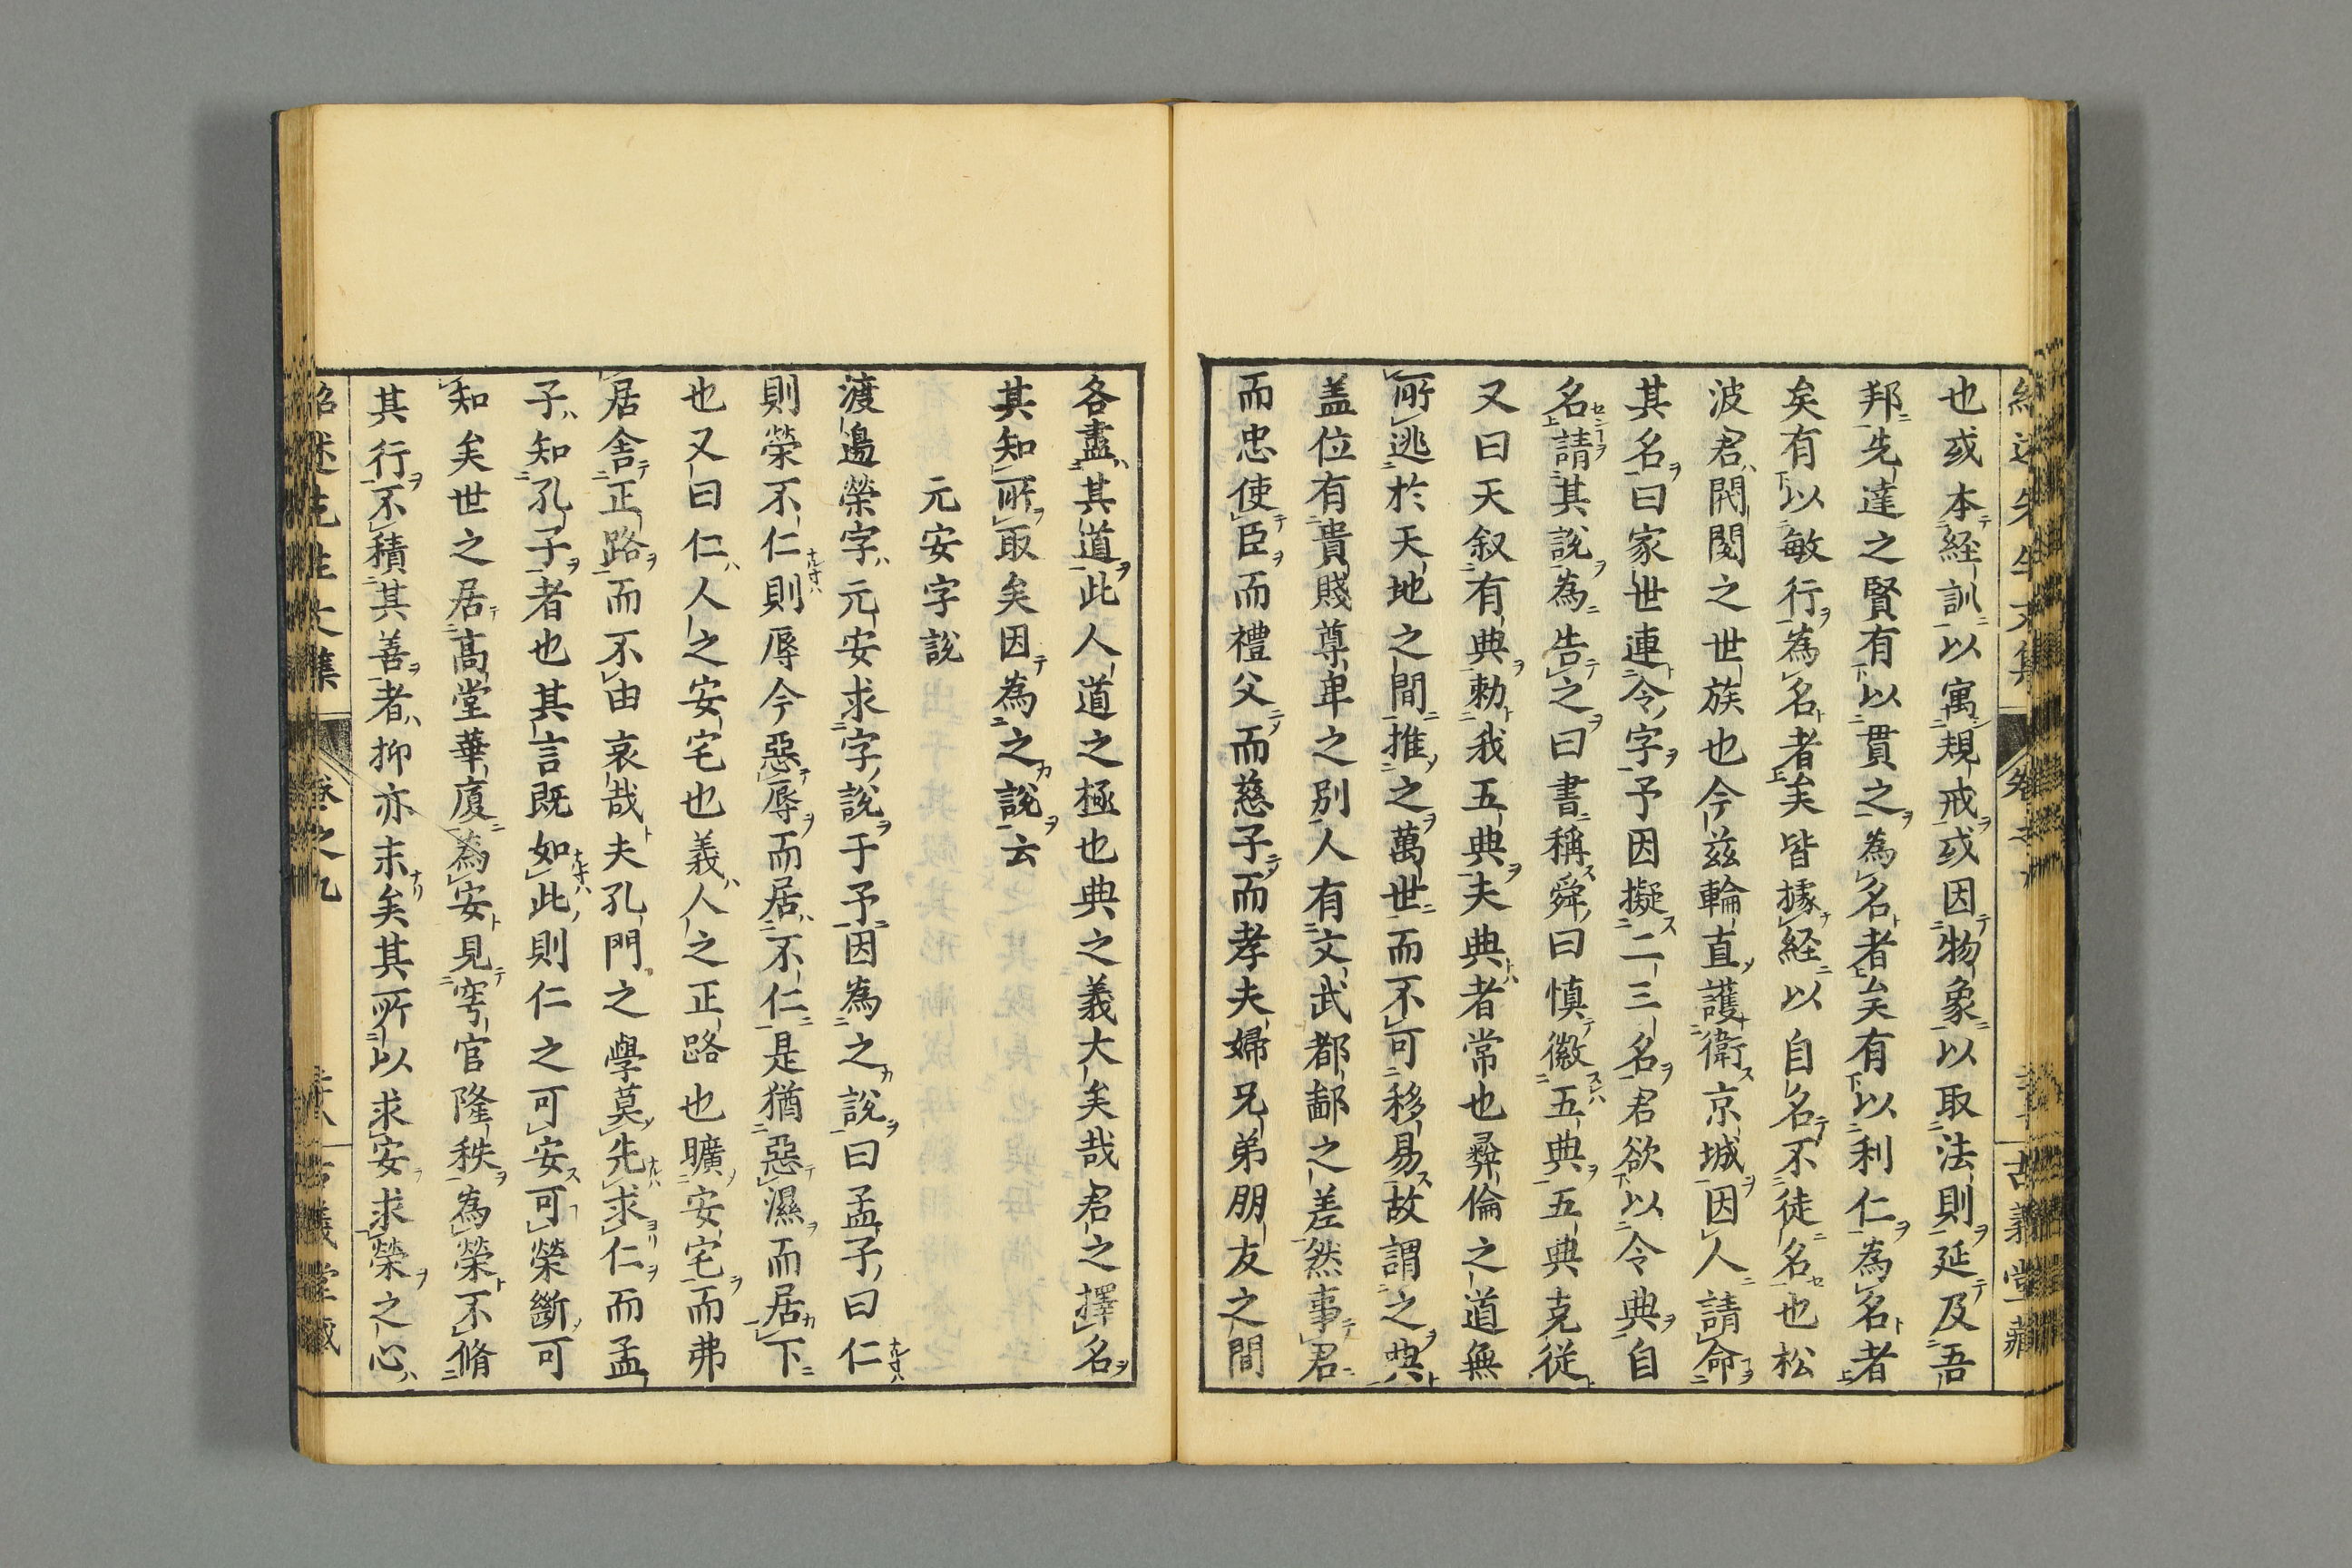 也或本経訓以寓規戒或因物象以取法則延及吾
邦先達之賢有以貫之為名者矣有以利仁為名者
矣有以敏行為名者矣皆據経以自名不徒名也松
波君閥閲之世族也今茲輪直護衛京城因人請命
其名曰家世連令字予因擬二三名君欲以令典自
名請其說為告之曰書稱舜曰慎徽五典五典克従
又曰天叙有典勅我五典夫典者常也彜倫之道無
所逃於天地之間推之萬世而不可移易故謂之典
盖位有貴賤尊卑之別人有文武都鄙之差然事君
而忠使臣而禮父而慈子而孝夫婦兄弟朋友之間
各盡其道此人道之極也典之義大矣哉君之擇名
其知所取矣因為之說云
元安字説
渡邉榮字元安求字說于予因為之說曰孟子曰仁
則榮不仁則辱今惡辱而居不仁是猶惡濕而居下
也又曰仁人之安宅也義人之正路也曠安宅而弗
居舍正路而不由哀哉夫孔門之學莫先求仁而孟
子知孔子者也其言既如此則仁之可安可榮斷可
知矣世之居高堂華廈為安見穹官隆秩為榮不脩
其行不積其善者抑亦末矣其所以求安求榮之心
紹述先生文集 卷之九 古義堂藏